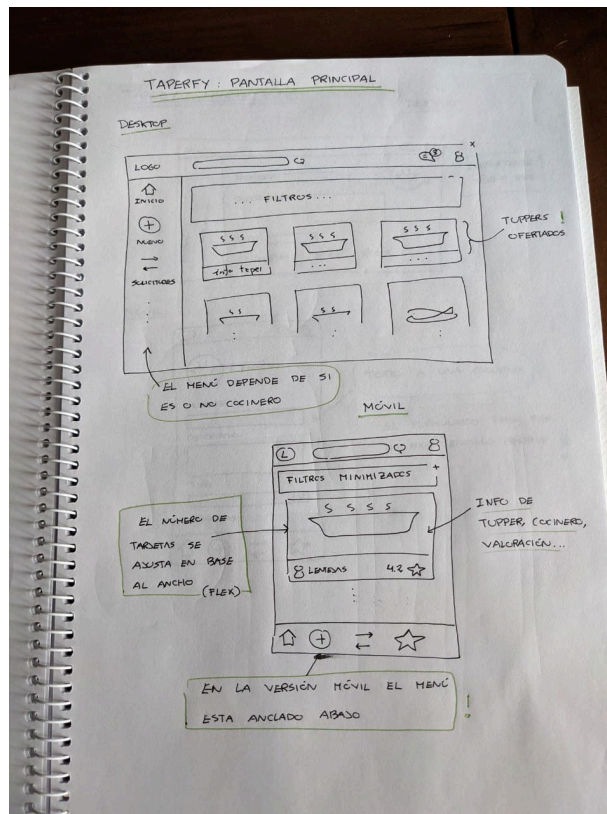 TAPERFY : PANTALLA PRINCIPAL
DESKTOP
x
LOGO
INICIO
NUEVO
SOLICITUDES
... FILTROS ...
info taper
...
...
TUPPERS !
OFERTADOS
EL MENÚ DEPENDE DE SI
ES O NO COCINERO
MÓVIL
L
FILTROS MINIMIZADOS +
4.2
EL NÚMERO DE
TARJETAS SE
AJUSTA EN BASE
AL ANCHO (FLEX)
INFO DE
TUPPER, COCINERO,
VALORACIÓN...
EN LA VERSIÓN MÓVIL EL MENÚ
ESTA ANCLADO ABAJO !